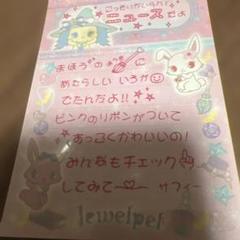 ニュースだよ
まほうの
あたらしい いろが
でたんだよ!!
ピンクのリボンがついて
すっごくかわいいの!
みんなもチェック
してみて サフィー
Jewelpet